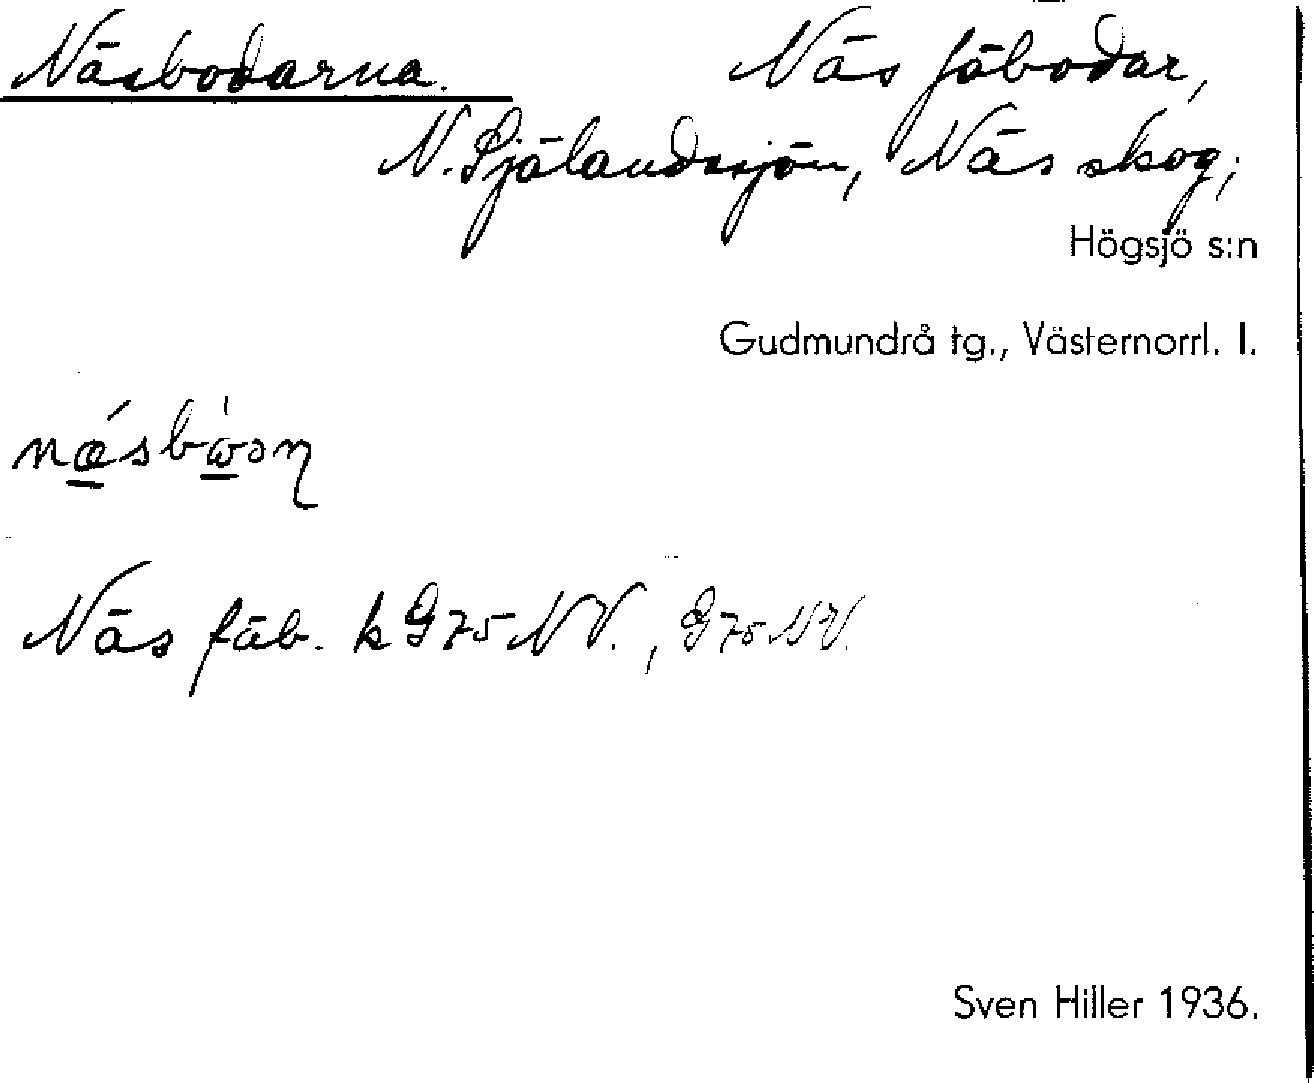 Näsbodarna. Näs fäbodar,
N. Själandssjön, Näs skog;
Högsjö s:n
Gudmundrå tg., Västernorrl. l.
Näs fäb. k G75NV., G75NV.
Sven Hiller 1936.